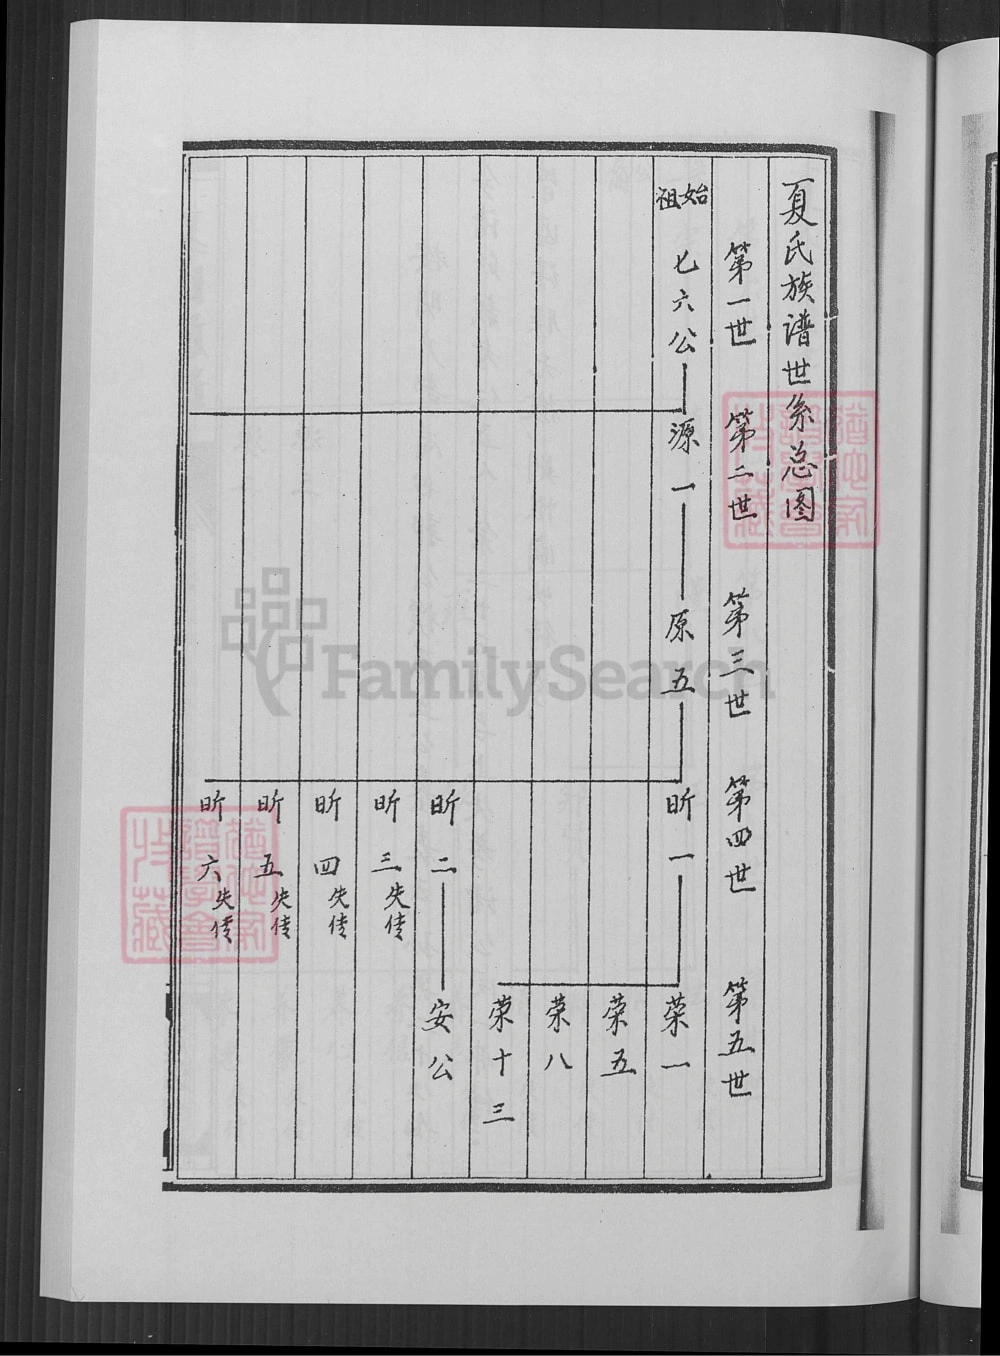 夏氏族谱世系总图
第一世
第二世
第三世
第四世
第五世
始祖
七六公
源一
原五
昕一
荣一
荣五
荣八
荣十三
昕二
安公
昕三失传
昕四失传
昕五失传
昕六失传
FamilySearch